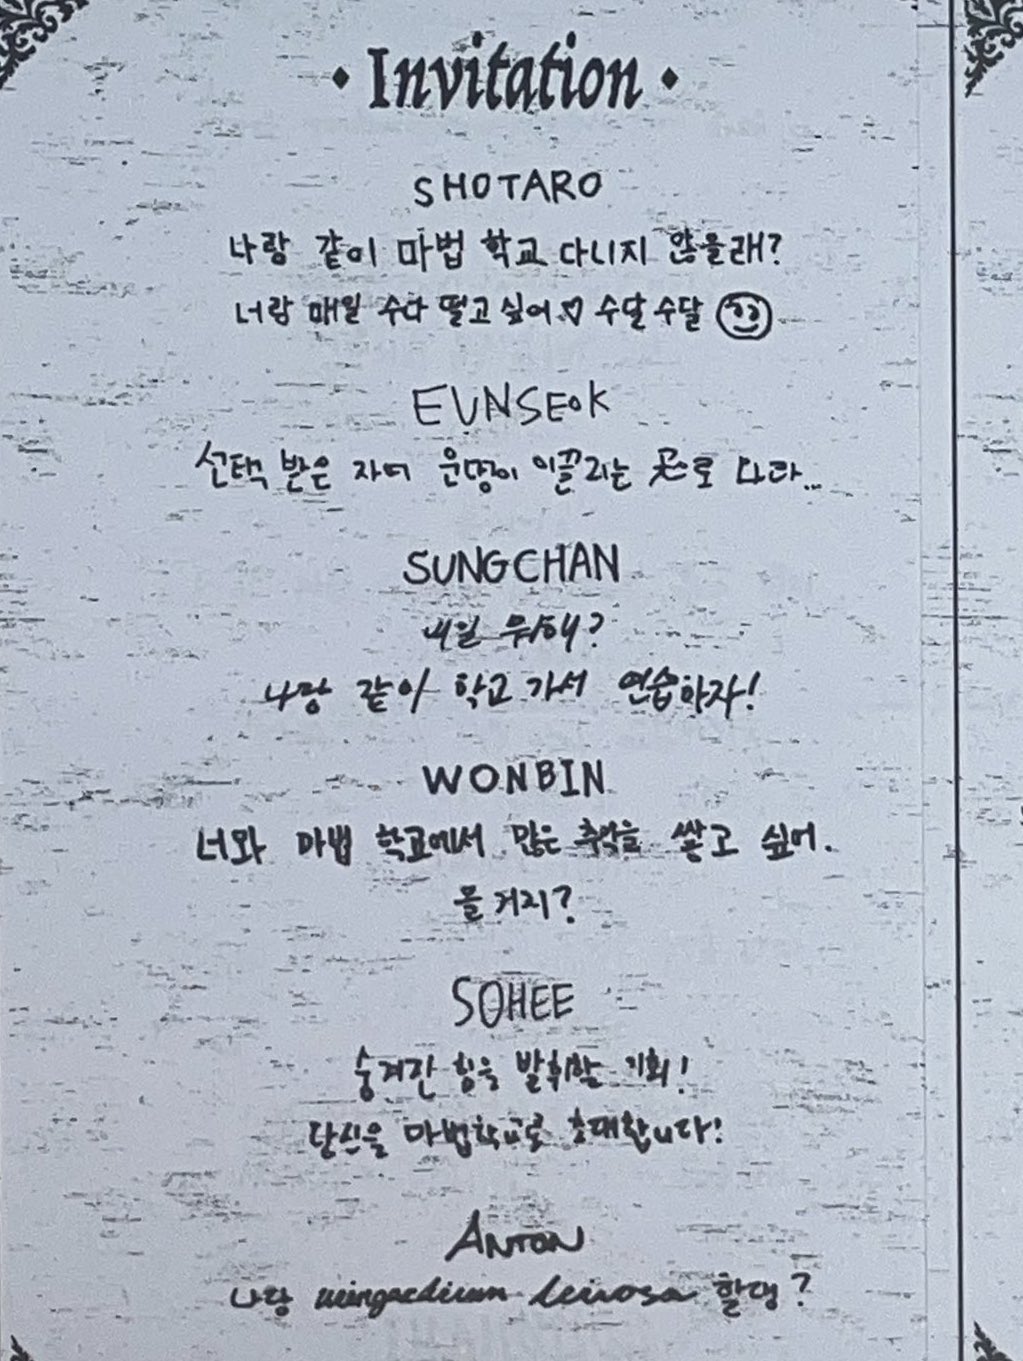 Invitation
SHOTARO
나랑 같이 마법 학교 다니지 않을래?
너랑 매일 수다 떨고 싶어♡ 수달수달
EUNSEOK
선택 받은 자여 운명이 이끌리는 곳으로 따라...
SUNGCHAN
내일 뭐해?
나랑 같이 학교 가서 연습하자!
WONBIN
너와 마법 학교에서 많은 추억을 쌓고 싶어.
올 거지?
SOHEE
숨겨진 힘을 발휘할 기회!
당신을 마법학교로 초대합니다!
ANTON
나랑 wingardium leviosa 할명?